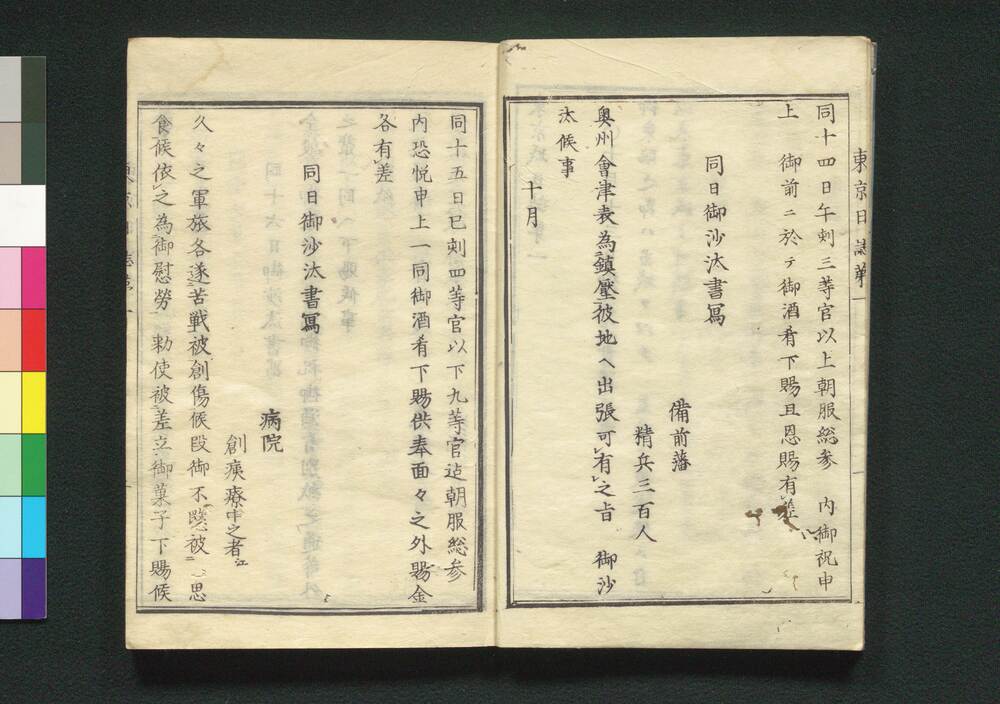 東京日誌第一
同十四日午刻三等官以上朝服総参　内御祝申
上　御前ニ於テ御酒肴下賜且恩賜有差
同日御沙汰書写
備前藩
精兵三百人
奥州會津表為鎮壓彼地ヘ出張可有之旨　御沙
汰候事
十月
同十五日巳刻四等官以下九等官迠朝服総参
内恐悦申上一同御酒肴下賜供奉面々之外賜金
各有差
同日御沙汰書冩
病院
創痍療中之者江
久々之軍旅各遂苦戦被創傷候段御不愍被　思
食候依之為御慰勞　勅使被差立御菓子下賜候